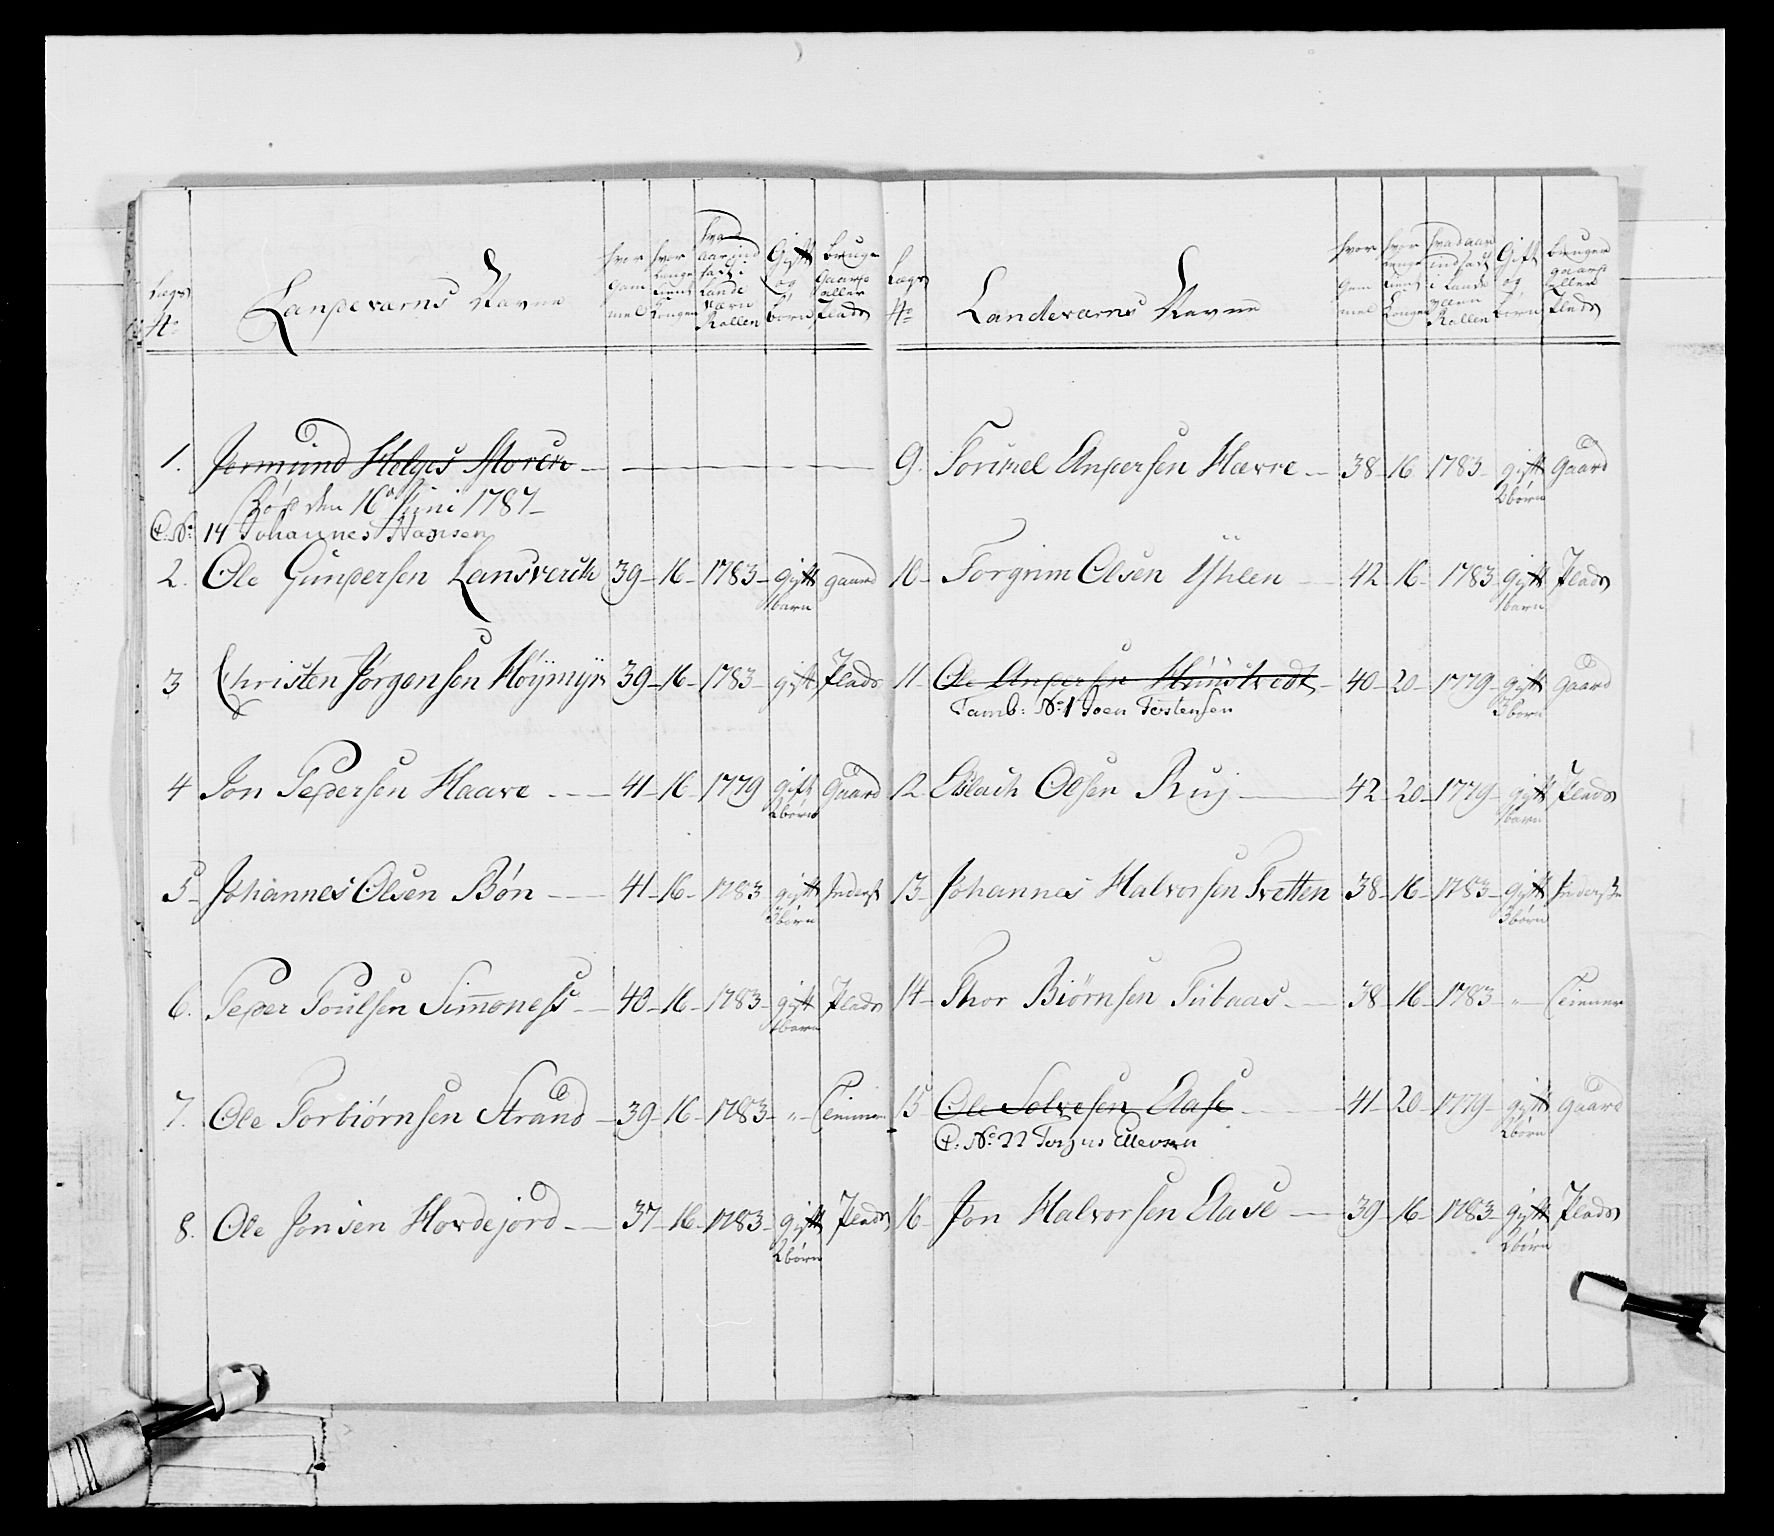 Lægs No Landeværns Navne hvor gammel hvor længe tient Kongen hvad aar indsadt i Landeværn Rollen Gift og børn bruger Gaard eller Plads
1. Jermund Helges Storck
Død den 16de Juni 1787
C. No: 14 Johannes Hansen
2. Ole Gundersen Landsverck 39 16 1783 gift 1 barn gaard
3 Christen Jørgensen Høijmÿr 39 16 1783 gift Plads
4 Jon Pedersen Haave 41 16 1779 gift 2 børn Gaard
5 Johannes Olsen Bøn 41 16 1783 gift 3 børn Inderst
6. Peder Poulsen Simones 40 16 1783 gift 1 barn Plads
7. Ole Torbiørnsen Strand 39 16 1783 " Tienner
8. Ole Jonsen Hovdejord 37 16 1783 gift 2 børn Plads
Lægs No Landeværns Navne hvor gammel hvor længe tient Konge hvad aar indsadt i Lande værn Rollen Gift og børn bruger gaard eller Plads
9. Torimel Andersen Hævre 38 16 1783 gift 2 børn Gaard
10 Torgrim Olsen Yhlen 42 16 1783 gift 1 barn Plads
11 Ole Andersen Hünstvedt 40 20 1779 gift 3 børn Gaard
Tamb: No: 1 Joen Tostensen
12 Eslach Olsen Ruj 42 20 1779 gift 1 barn Plads
13 Johannes Halvorsen Tvetten 38 16 1783 gift 3 børn Inderste
14 Thor Biørnsen Tubaas 38 16 1783 " Tienner
15 Ole Solvesen Aase 41 20 1779 gift 2 børn gaard
C. No: 22 Torjus Ellevsen
16 Jon Halvorsen Aase 39 16 1783 gift 2 børn Plads